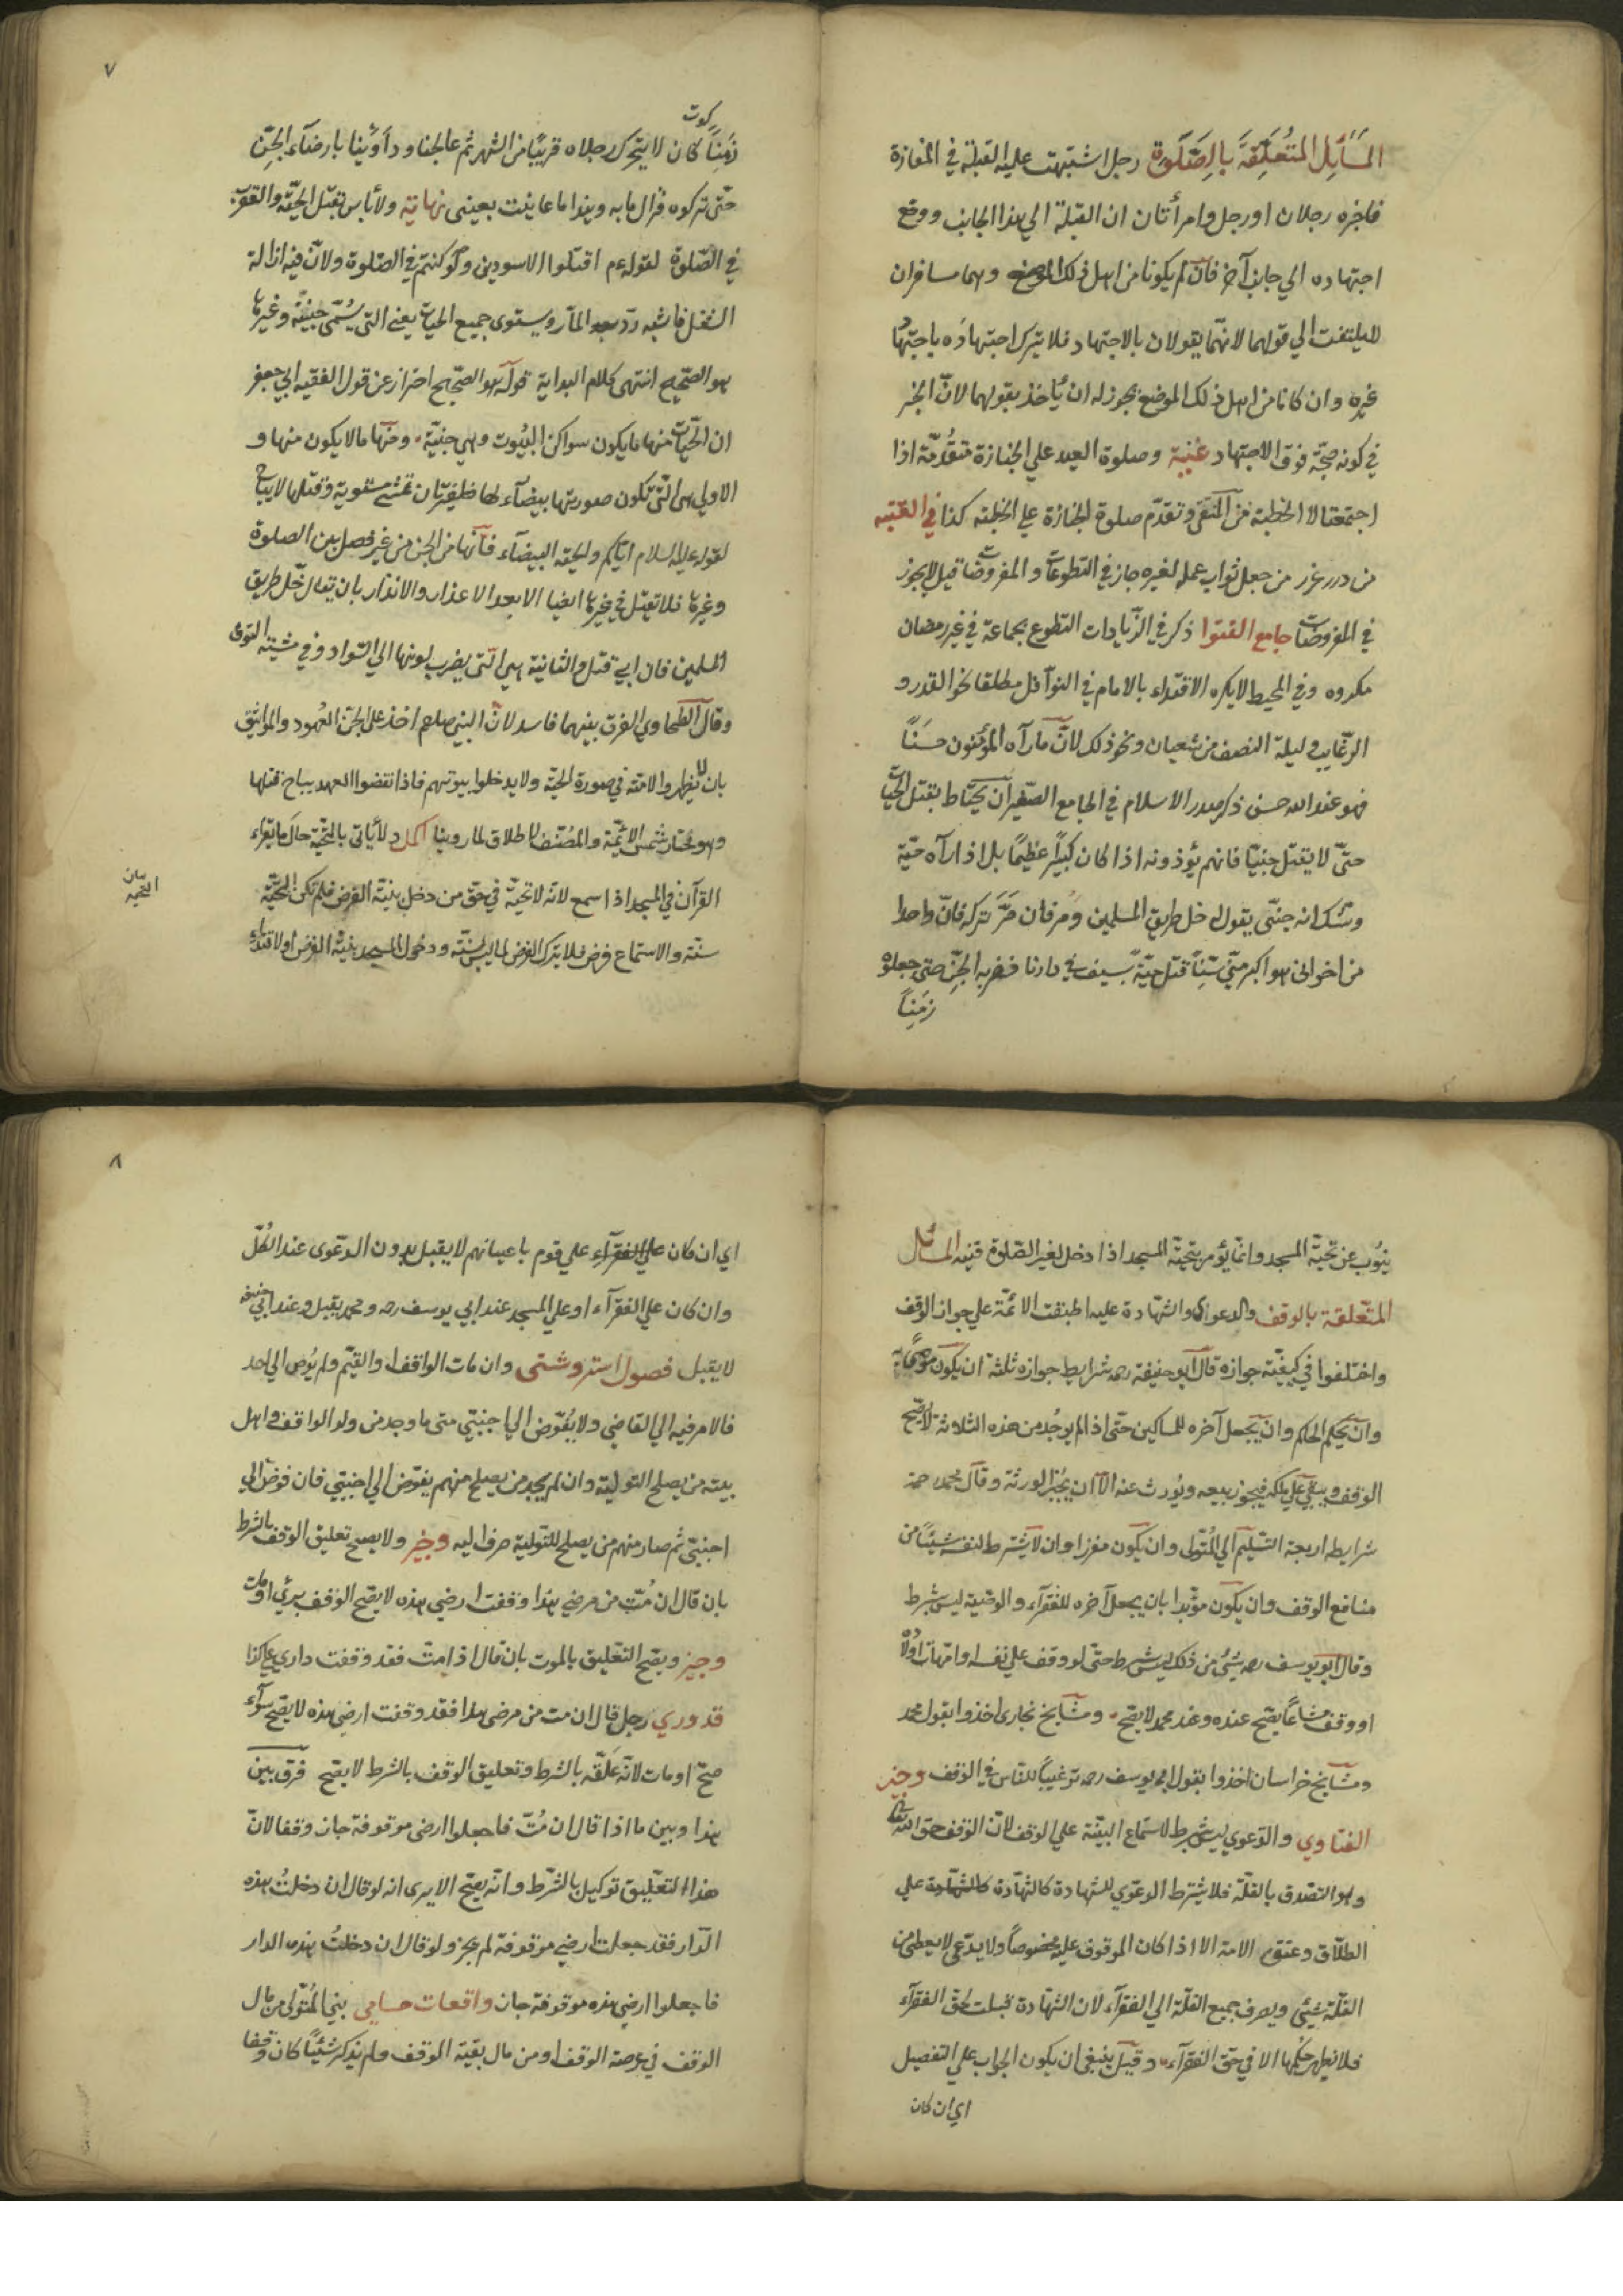 المسائل المتعلقة بالصلوة رجل اشتبهت عليه القبلة في المفازة
فاخبره رجلان او رجل وامرأتان ان القبلة الي هذا الجانب ووقع
اجتهاده الي جانب آخر فان لم يكونا من اهل ذلك الموضع وهما مسافران
لا يلتفت الي قولهما لانهما يقولان بالاجتهاد فلا يترك اجتهاده باجتهاد
غيره وان كانا من اهل ذلك الموضع يجوز له ان يأخذ بقولهما لان الخبر
في كونه حجة فوق الاجتهاد غنية وصلوة العيد علي الجنازة متقدمة اذا
اجتمعتا لا الخطبة من المنتقى وتقدم صلوة الجنازة علي الخطبة كذا في القنية
من درر غرر من جعل ثواب عمله لغيره جاز في التطوعات والمفروضات قيل لا يجوز
في المفروضات جامع الفتوا ذكر في الزيادات التطوع بجماعة في غير رمضان
مكروه وفي المحيط لا يكره الاقتداء بالامام في النوافل مطلقا نحو القدر و
الرغايب وليلة النصف من شعبان ونحو ذلك لانّ ما رآه المؤمنون حسنًا
فهو عند الله حسن ذكر صدر الاسلام في الجامع الصغير ان يحتاط بقتل الحيات
حتى لا يقتل جنيّا فانهم يؤذونه اذا كان كبيرًا عظيمًا بل اذا رآه حيّة
وشك انه جنّى يقول له خل طريق المسلمين ومر فان مرّ تركه فانّ واحدا
من اخواني هو اكبر منّي سنًّا قتل حيّة بسيف في دارنا فضربه الجن حتى جعلوه
زمنًا
كوت
زمنًا كان لا يتحرك رجلاه قريبًا من الشهر ثم عالجنا وداوينا بارضآء الجنّ
حتى تركوه فزال ما به وهذا ما عاينت بعيني نهاية ولا بأس بقتل الحية والعقرب
في الصلوة لقوله عم اقتلوا الاسودين ولو كنتم في الصلوة ولان فيه ازالة
الشغل فاشبه ردّ المآر ويستوى جميع الحيات يعني التي يسمّى جنيّة وغيرها
هو الصحيح انتهى كلام الهداية قوله هو الصحيح احتراز عن قول الفقيه ابي جعفر
ان الحيات منها ما يكون سواكن البيوت وهي جنيّة ومنها ما لا يكون منها و
الاولي هى التى تكون صورتها بيضآء لها ضفيرتان تمشي مستوية وقتلها لا يباح
لقوله عليه السلام اياكم والحية البيضآء فانها من الجن من غير فصل بين الصلوة
وغيرها فلا تقتل في غيرها ايضا الا بعد الاعذار والانذار بان يقال خلّ طريق
المسلمين فان ابي قتل والثانية هي التى يضرب لونها الي السّواد وفي مشيته التوى
وقال الطحاوي الفرق بينهما فاسد لانّ النبي صلعم اخذ على الجن العهود والمواثيق
بان لا يظهروا لامته في صورة الحية ولا يدخلوا بيوتهم فاذا نقضوا العهد يباح قتلها
وهو مختار شمس الائمّة والمصنف لاطلاق ما روينا اكمل ولا يأتى بالتحيّة حال ما يقراء
القرآن في المسجد اذا سمع لانه لا تحيّة في حق من دخل بنيّة الفرض فلم تكن التحيّة
بيان
التحية
سنّة والاستماع فرض فلا يترك الفرض لما ليس بسنّة ودخول المسجد بنيّة الفرض او لاقتداء
٧
ينوب عن تحيّة المسجد وانما يؤمر بتحيّة المسجد اذا دخل لغير الصّلوة قنيه المسائل
المتعلقة بالوقف والدعوى والشهادة عليه اطبقت الائمّة علي جواز الوقف
واختلفوا في كيفيّة جوازه قال ابو حنيفة رحمه شرايط جوازه ثلثة ان يكون موصًى به
وان يحكم الحاكم وان يجعل آخره للمساكين حتى اذا لم يوجد من هذه الثلاثة لا يصحّ
الوقف ويبقي علي ملكه فيجوز بيعه ويورث عنه الا ان يجيز الورثة وقال محمد رحمه
شرايطه اربعة التسليم الي المتولى وان يكون مفرزا وان لا يشترط لنفسه شيئًا من
منافع الوقف وان يكون مؤبدا بان يجعل آخره للفقرآء والوصية ليس بشرط
وقال ابو يوسف رحمه شئ من ذلك ليس بشرط حتّى لو وقف علي نفسه وامهات اولاده
او وقف مشاعًا يصح عنده وعند محمد لا يصح ومشايخ بخارى اخذوا بقول محمد
ومشايخ خراسان اخذوا بقول ابي يوسف رحمه ترغيبًا للناس في الوقف وجيز
الفتاوي والدعوي ليس بشرط لاستماع البيّنة علي الوقف لانّ الوقف حق الله تعالى
وهو التصدق بالغلّة فلا يشترط الدعوي للشهادة كالشهادة علي
الطلاق وعتق الامة الا اذا كان الموقوف عليه مخصوصًا ولا يدّعي لا يعطى من
الغلّة شئي ويصرف جميع الغلّة الي الفقرآء لان الشهادة قبلت لحق الفقرآء
فلا يظهر حكمها الا في حق الفقرآء وقيل ينبغى ان يكون الجواب علي التفصيل
اي ان كان
اي ان كان علي الفقرآء علي قوم باعيانهم لا يقبل بدون الدعوى عند الكلّ
وان كان علي الفقرآء او علي المسجد عند ابي يوسف رحمه ومحمد يقبل وعند ابي حنيفه
لا يقبل فصول استروشنى وان مات الواقف او القيّم ولم يوص الى احد
فالامر فيه الي القاضي ولا يفوّض الي اجنبيّ متى ما وجد من ولد الواقف او اهل
بيته من يصلح التولية وان لم يجد من يصلح منهم يفوّض الي اجنبي فان فوض الي
اجنبيّ ثم صار منهم من يصلح للتولية صرف اليه وجيز ولا يصح تعليق الوقف بالشرط
بان قال ان متّ من مرضي هذا وقفت ارضي هذه لا يصح الوقف برئ او مات
وجيز ويصح التعليق بالموت بان قال اذا متّ فقد وقفت داري علي كذا
قدوري رجل قال ان مت من مرضى هذا فقد وقفت ارضي هذه لا يصحّ سوآء
صحّ او مات لانه علّقه بالشرط وتعليق الوقف بالشرط لا يصح فرق بين
هذا وبين ما اذا قال ان متّ فاجعلوا ارضى موقوفة جاز وقفا لانّ
هذا التعليق توكيل بالشرط وانه يصح الا يرى انه لو قال ان دخلتُ هذه
الدار فقد جعلت ارضي موقوفة لم يجز ولو قال ان دخلت هذه الدار
فاجعلوا ارضي هذه موقوفة جاز واقعات حسامي بني المتولى من مال
الوقف في عرصة الوقف او من مال بقيّة الوقف ولم يذكر شئيًا كان وقفا
٨